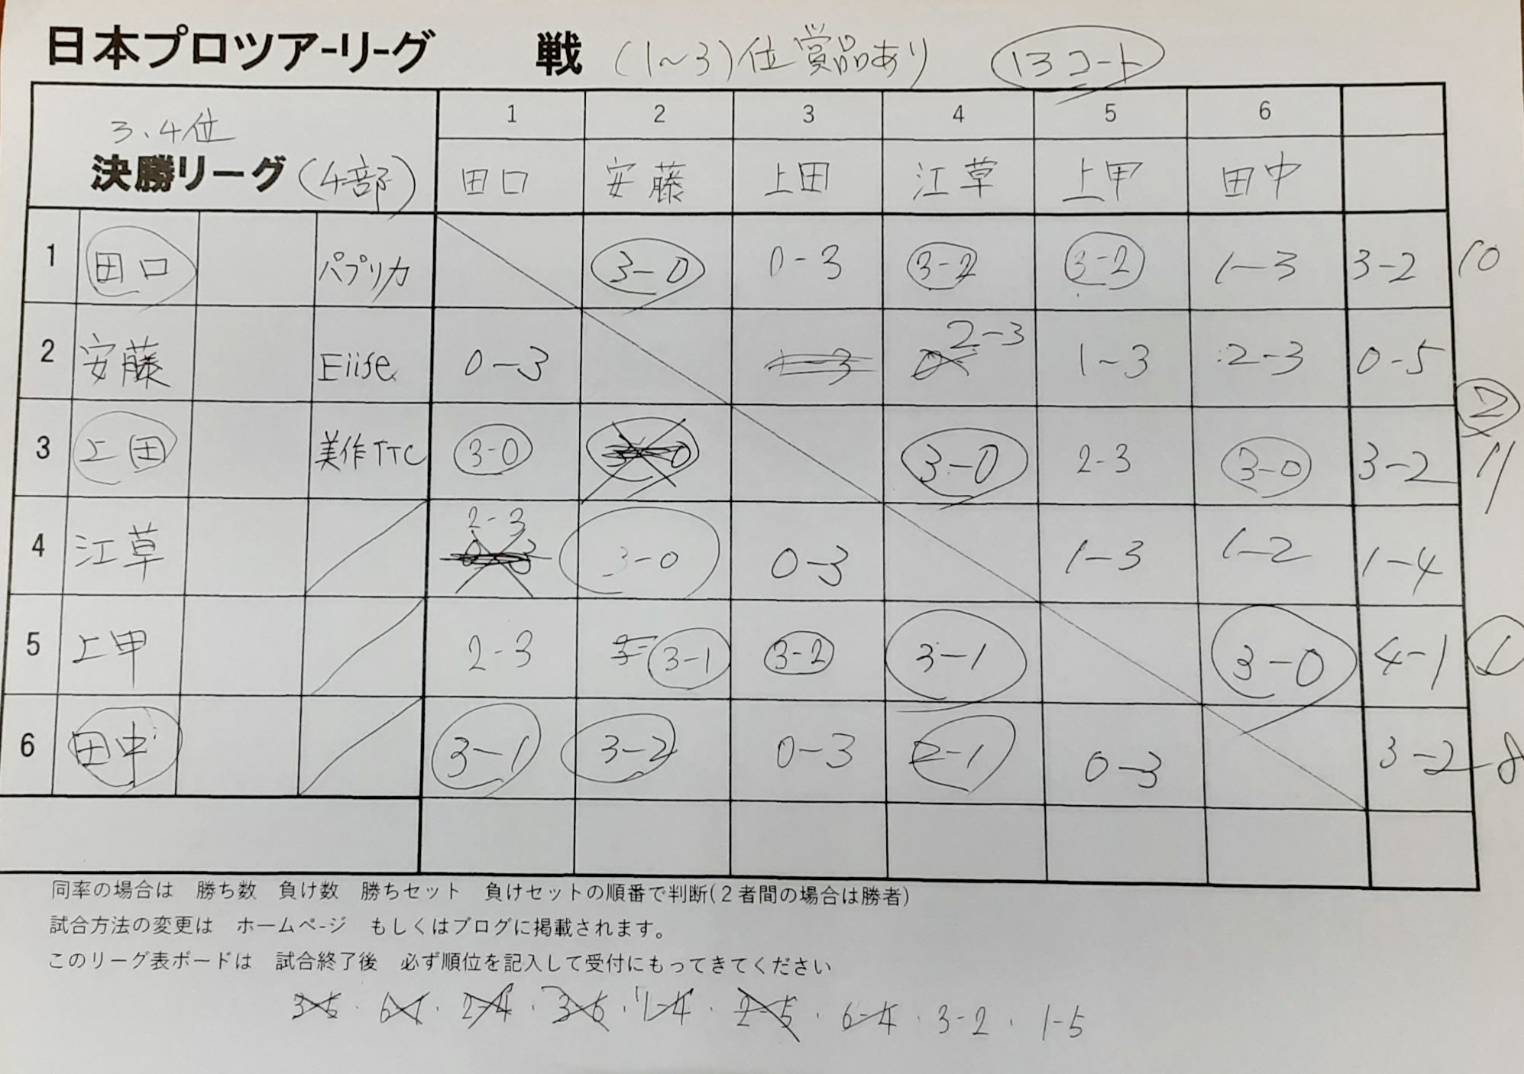 日本プロツアーリーグ 戦 (1～3)位賞品あり 13コート
1 2 3 4 5 6
3.4位
決勝リーグ(4部) 田口 安藤 上田 江草 上甲 田中
1 田口 パプリカ 3-0 0-3 3-2 3-2 1-3 3-2 10
2 安藤 Eiise 0-3 2-3 1-3 2-3 0-5
②
3 上田 美作TTC 3-0 3-0 2-3 3-0 3-2 11
4 江草 2-3 3-0 0-3 1-3 1-2 1-4
5 上甲 2-3 3-1 3-2 3-1 3-0 4-1 ①
6 田中 3-1 3-2 0-3 2-1 0-3 3-2 8
同率の場合は 勝ち数 負け数 勝ちセット 負けセットの順番で判断(2者間の場合は勝者)
試合方法の変更は ホームページ もしくはブログに掲載されます。
このリーグ表ボードは 試合終了後 必ず順位を記入して受付にもってきてください
2-4 · 3-6 · 1-4 · 2-5 · 6-4 · 3-2 · 1-5